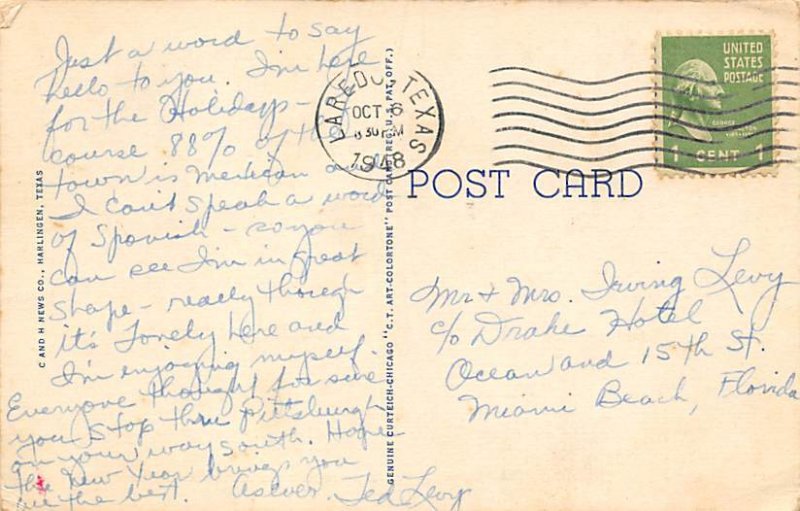 Just a word to say
hello to you. I'm here
for the Holidays -
course 88% of the
town is Mexican and
I can't speak a word
of Spanish - so you
can see I'm in great
shape - really though
it's lovely here and
I'm enjoying myself.
Everyone thought for sure
you stop thru Pittsburgh
on your way south. Hope
the New Year brings you
all the best. As ever. Ted Levy
C AND H NEWS CO., HARLINGEN, TEXAS
GENUINE CURTEICH-CHICAGO "C.T. ART-COLORTONE" POST CARD (REG. U.S. PAT. OFF.)
LAREDO, TEXAS
OCT 6
8 30 PM
1948
UNITED
STATES
POSTAGE
GEORGE
WASHINGTON
1 CENT 1
POST CARD
Mr & Mrs. Irving Levy
c/o Drake Hotel
Ocean and 15th St.
Miami Beach, Florida